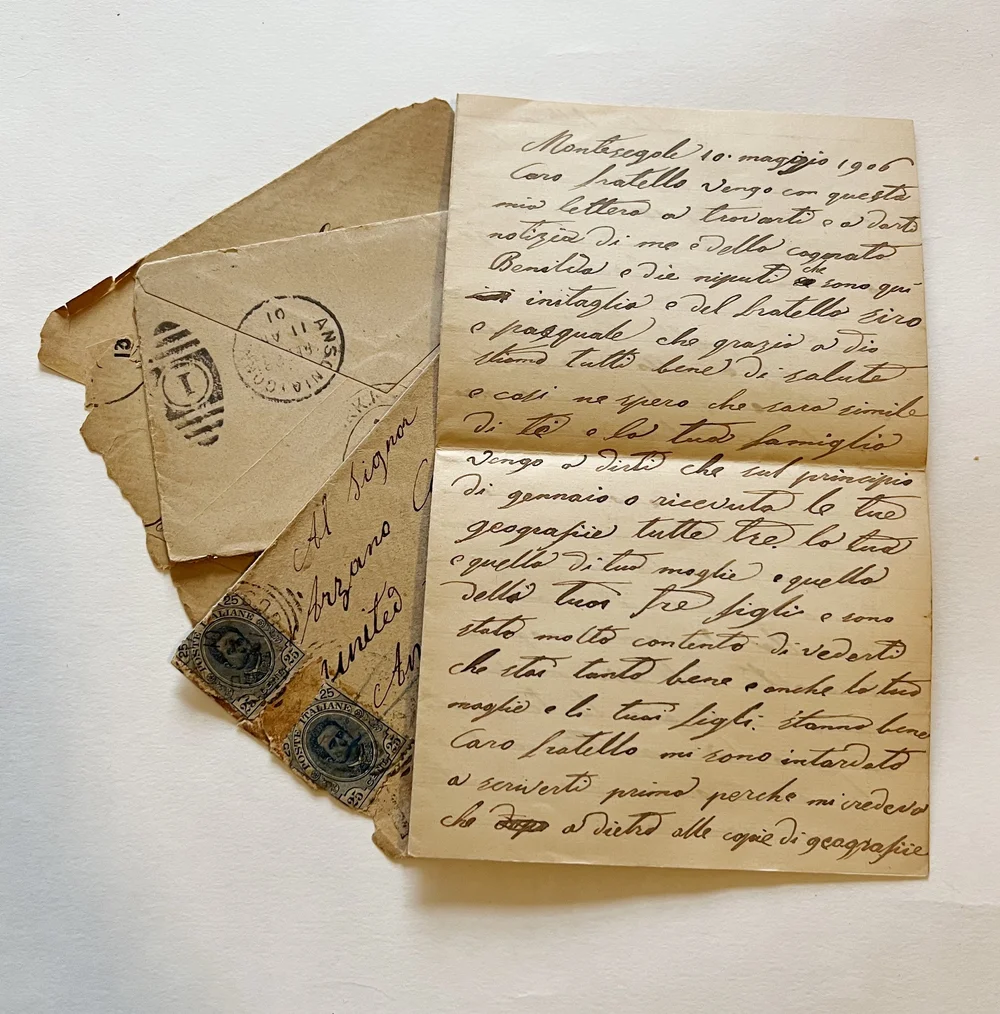 Montesegale 10. maggio 1906
Caro fratello vengo con questa
mia lettera a trovarti e a darti
notizia di me e della cognata
Benilda e die niputi che sono qui
initaglia e del fratello siro
e pasquale che grazia a dio
stiamo tutti bene di salute
e cosi ne spero che sara simile
di te e la tua famiglia
vengo a dirti che sul principio
di gennaio o ricevuta le tue
geografiie tutte tre. la tua
e quella di tuo moglie e quella
della tuoi tre figli e sono
stato molto contento di vederti
che stai tanto bene e anche la tua
moglie e li tuoi figli. stanno bene
Caro fratello mi sono intardato
a scriverti prima perche mi credeva
che a dietro alle copie di geografiie
Al Signor
Arzano
united
ANSONIA
1
13
POSTE ITALIANE
25
25
25
POSTE ITALIANE
25
25
25